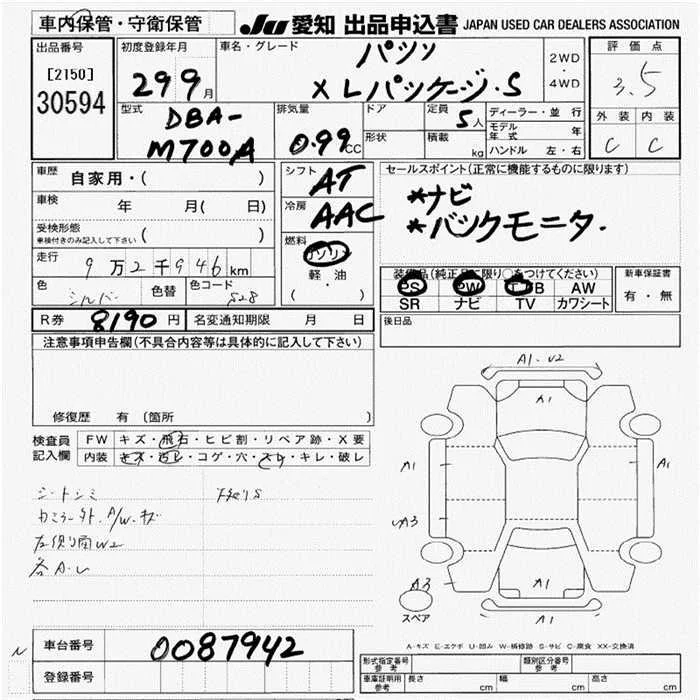 車内保管・守衛保管
JU 愛知 出品申込書 JAPAN USED CAR DEALERS ASSOCIATION
出品番号
[2150]
30594
初度登録年月
29 9月
車名・グレード
パッソ
X Lパッケージ・S
2WD
・
4WD
評価点
3.5
外装 内装
C C
型式
DBA-
M700A
排気量
0.99cc
ドア
形状
定員
5人
積載
kg
ディーラー・並行
モデル年式 年
ハンドル 左・右
車歴
自家用・( )
車検
年 月( 日)
受検形態
車検付きのみ記入して下さい ( )
走行
9万2千946km
色
シルバー
色替
色コード
S28
シフト
AT
冷房
AAC
燃料
ガソリン
軽・油
( )
セールスポイント(正常に機能するものに限ります)
*ナビ
*バックモニタ.
装備品(純正品に限り○をつけてください)
PS PW エアB AW
SR ナビ TV カワシート
新車保証書
有・無
R券 8190円 名変通知期限 月 日
後日品
注意事項申告欄(不具合内容等は具体的に記入して下さい)
修復歴 有 (箇所 )
検査員
記入欄
FW キズ・飛石・ヒビ割・リペア跡・X要
内装 キズ・汚レ・コゲ・穴・スレ・キレ・破レ
シートシミ
カミラー外.A/W.キズ
左側面W2
各A.U
A1.U2
A1
A1
A1
A3
A3
A1
A1
スペア
A-キズ E-エクボ U-凹み W-補修跡 S-サビ C-腐食 XX-交換済
N
車台番号
0087942
登録番号
形式指定番号
参考
類別区分番号
参考
車庫証明用
参考
長さ cm
幅 cm
高さ cm